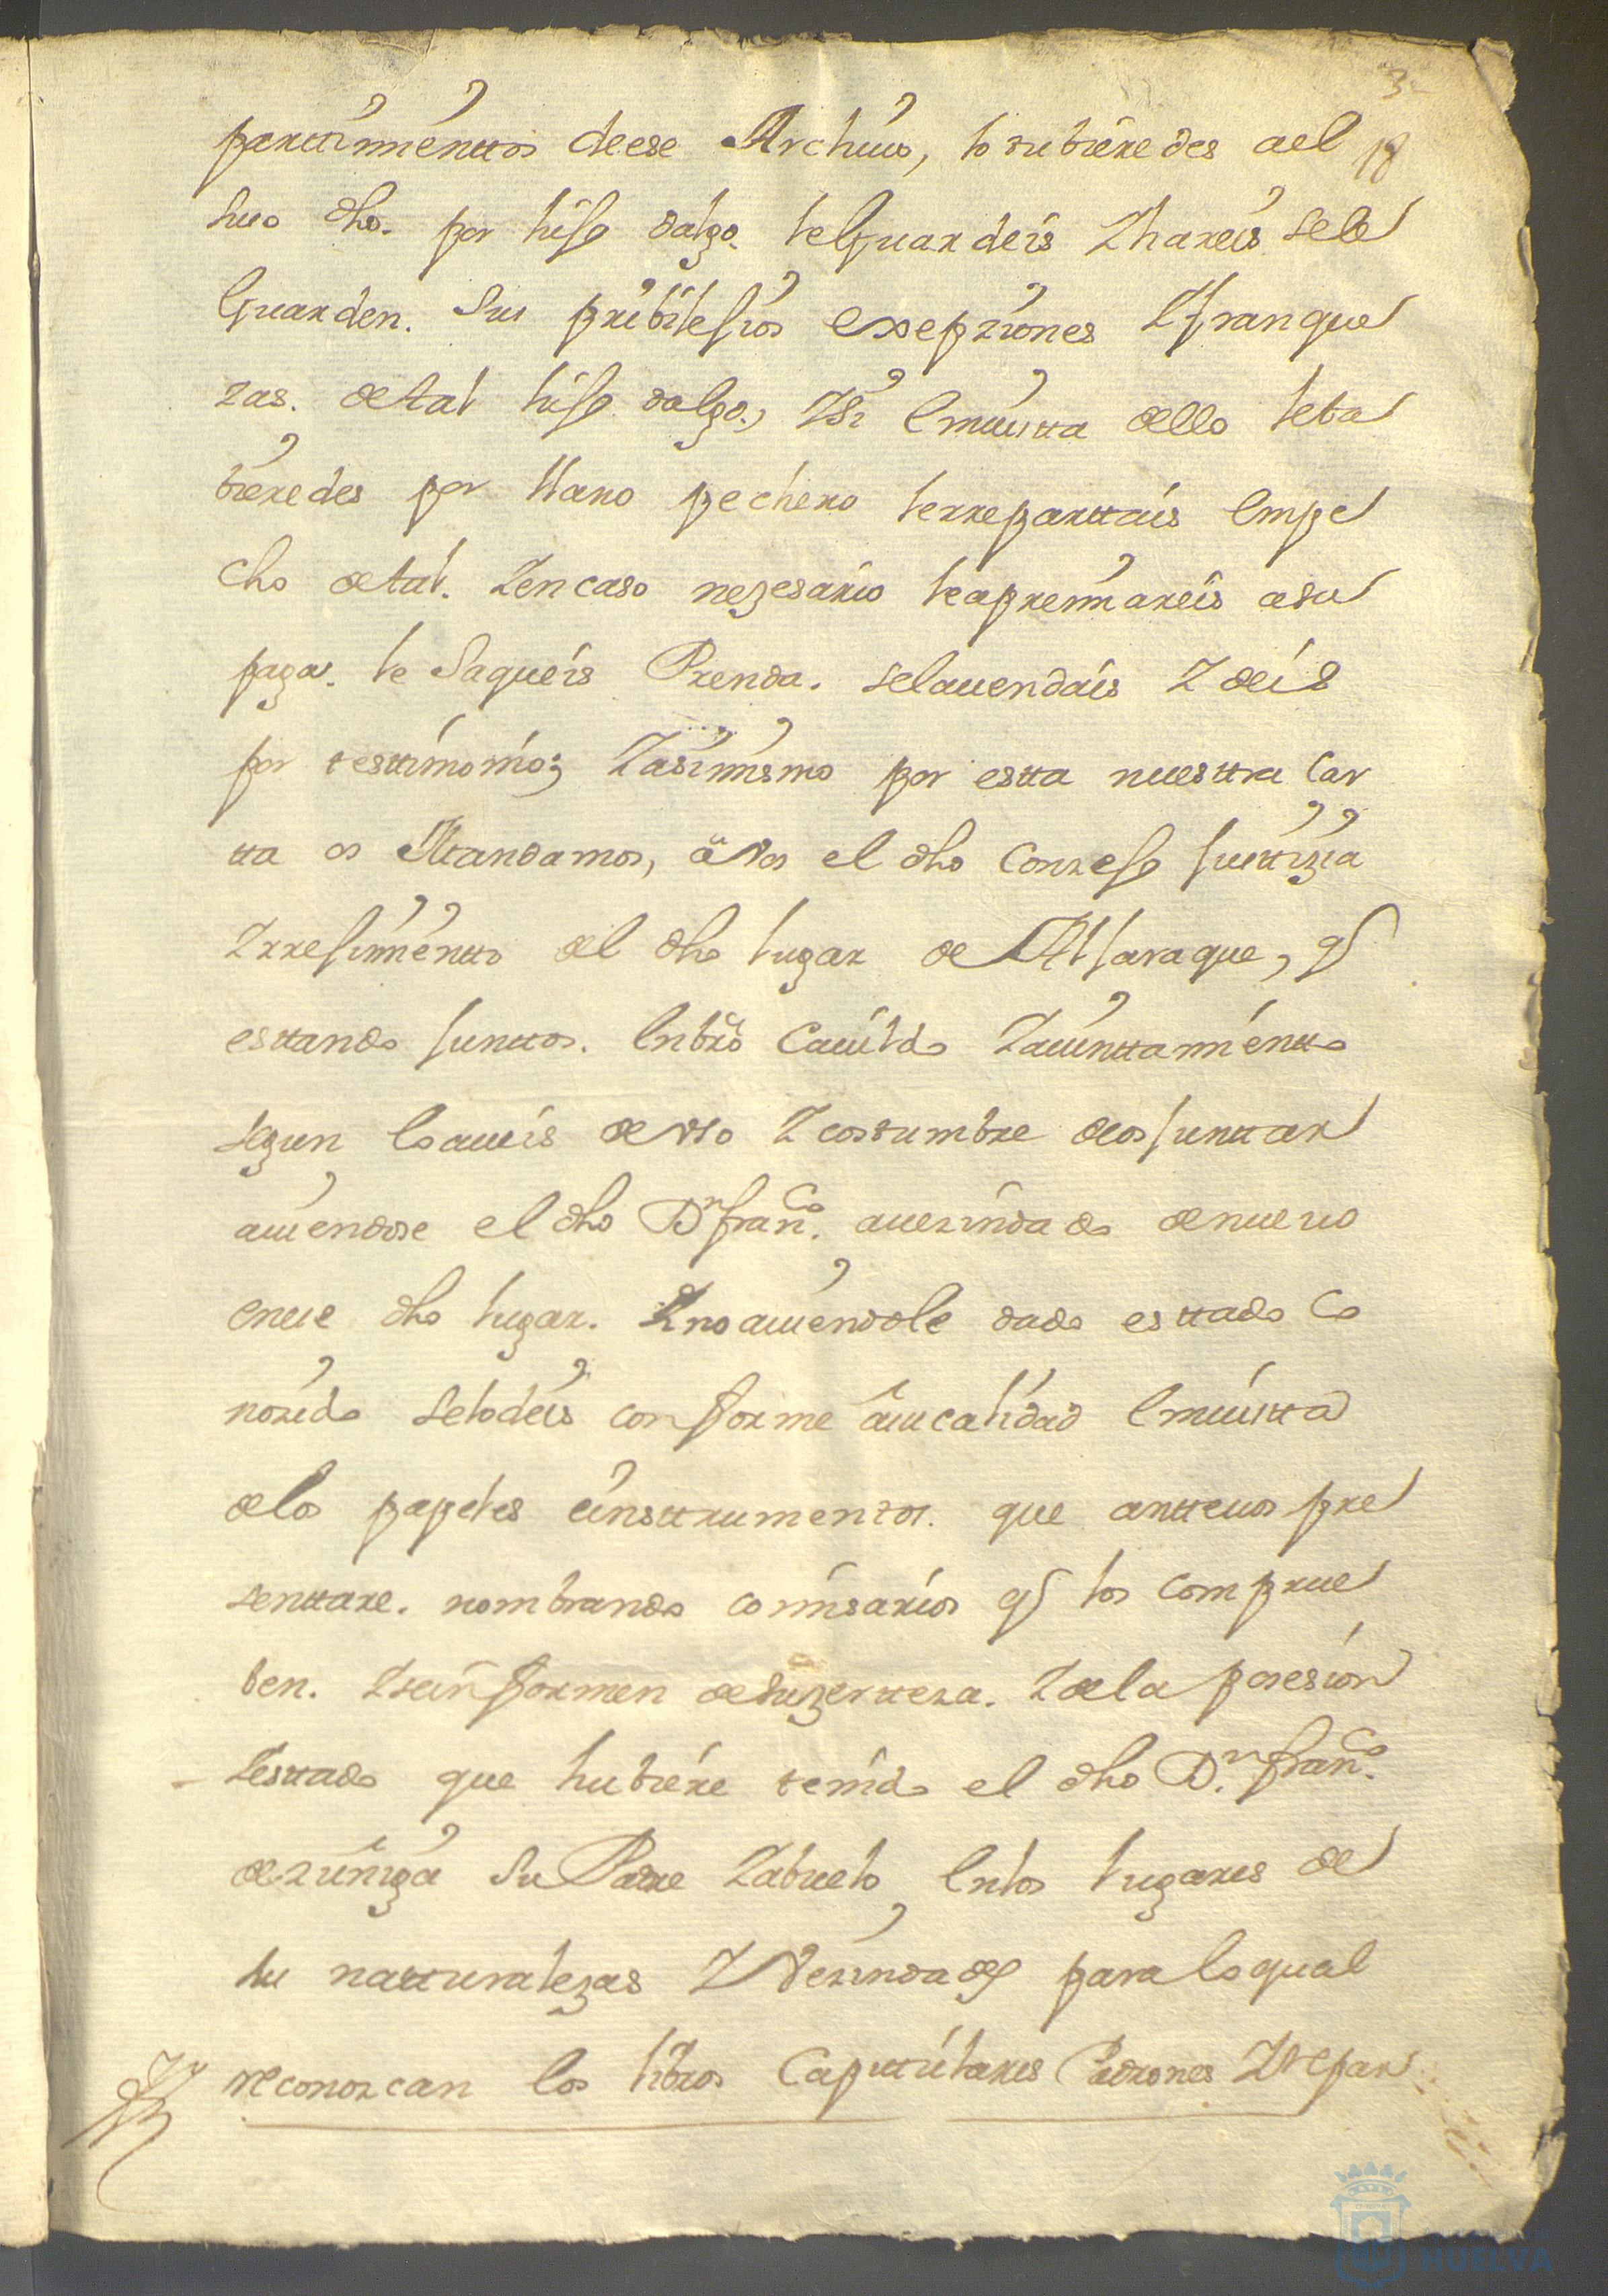 3
parttimienttos de ese Archiuo, lo tubieredes ael 18
suso dho. por hijo dalgo. le Guardeis Y hareis sele
Guarden. sus pribilejios exsepziones Y franque
zas. de tal hijo dalgo, Y Si en uistta dello le ttu
bieredes por llano pechero le rreparttais en pe
cho de tal. Y en caso nezesario le apremiareis a su
paga. le Saqueis Prenda. se la uendais Y deis
por testtimonio; Y asimismo por estta nuesttra Car
tta os Mandamos, a vos el dho Conzejo justtizia
Y rrejimientto del dho lugar de Aljaraque, q
esttando juntto. en buro Cauildo Y aiunttamientto
segun lo aueis de vso Y costumbre de os junttar
auiendose el dho Dn franco. auezindado de nueuo
en ese dho lugar. Y no auiendole dado esttado Co
nozido se lo deis conforme a su calidad en uistta
de los papeles e insttrumentos. que antte uos pre
senttare. nombrando comisarios q los comprue
ben. Y se informen de su zertteza. Y de la posesion
Y esttado que hubiere tenido el dho Dn. franco.
de zuñiga su Padre Y abuelo en los lugares de
su natturalezas Y Vezindades para lo qual
reconozcan los libros Capittulares Padrones Y repar
HUELVA